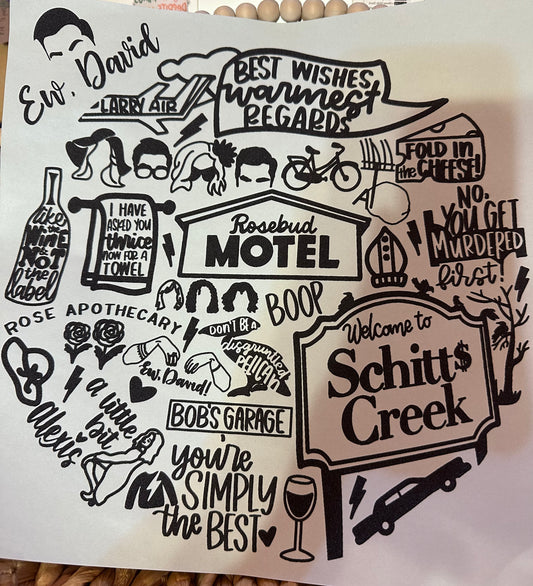 Ew, David
LARRY AIR
BEST WISHES,
warmest
REGARDS
FOLD IN
the CHEESE!
like
the
WINE
NOT
the
label
I HAVE
ASKED YOU
thrice
NOW FOR A
TOWEL
Rosebud
MOTEL
NO,
YOU GET
MURDERED
first!
ROSE APOTHECARY
BOOP
DON'T BE A
disgruntled
PELICAN
Ew, David!
Welcome to
Schitt$
Creek
a little
bit
Alexis
BOB'S GARAGE
you're
SIMPLY
the BEST